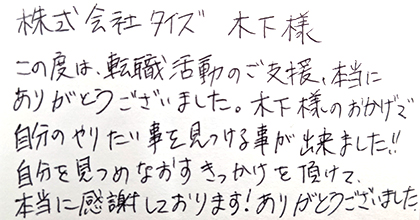 株式会社タイズ 木下様
この度は、転職活動のご支援、本当に
ありがとうございました。木下様のおかげで
自分のやりたい事を見つける事が出来ました!!
自分を見つめなおすきっかけを頂けて、
本当に感謝しております!ありがとうございました